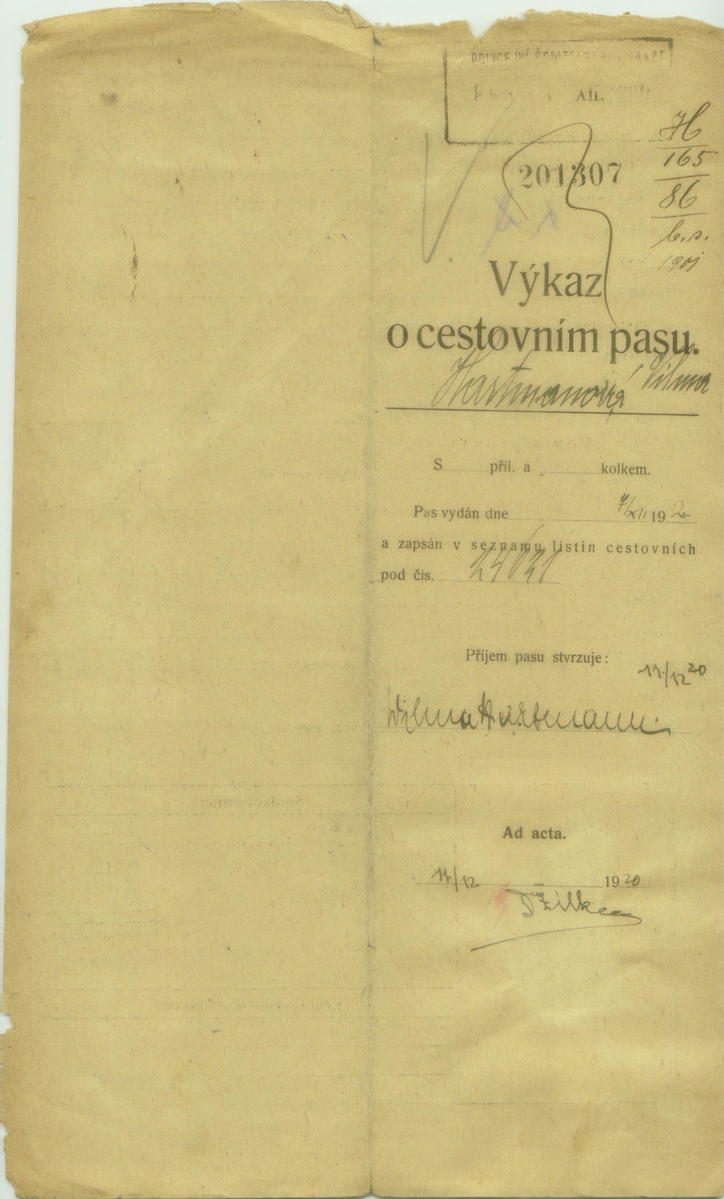 XII.
201307
H
165
86
b.s.
1901
Výkaz
o cestovním pasu.
Hartmanová Vilma
S příl. a kolkem.
Pas vydán dne 7/XII 1920
a zapsán v seznamu listin cestovních
pod čís.
Příjem pasu stvrzuje:
11/12 20
Wilma Hartmann.
Ad acta.
11/12 1920